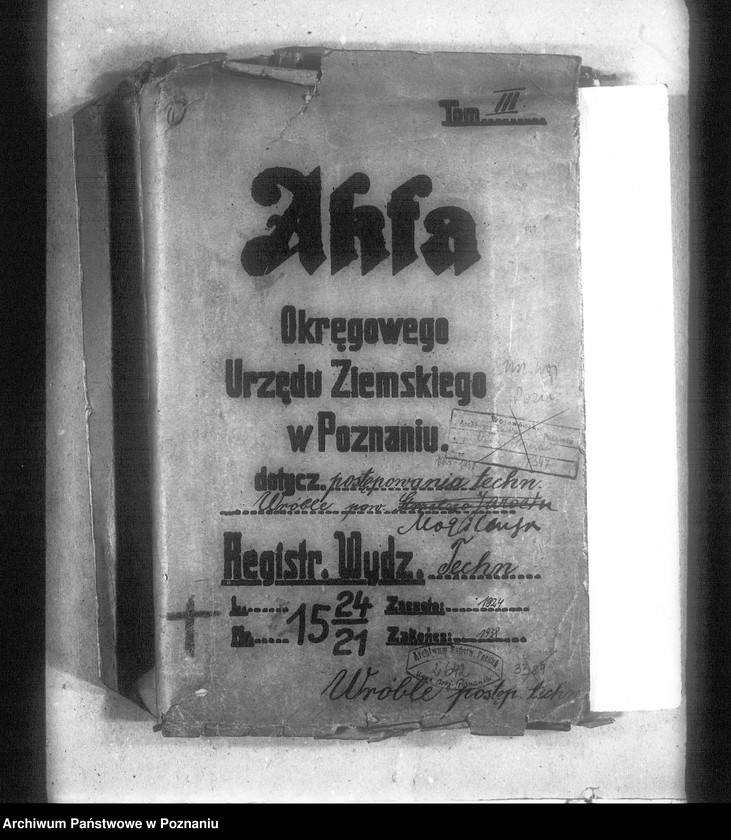 Tom III
Akta
Okręgowego
Urzędu Ziemskiego
w Poznaniu.
dotycz. postępowania techn.
Wróble pow.
Registr. Wydz. Techn
L. 15 24/21
Nr.
Zaczęto: 1924
Zakończ:
Archiwum Państw. Poznań
2642
3389
Wróble postęp. techn
Archiwum Państwowe w Poznaniu